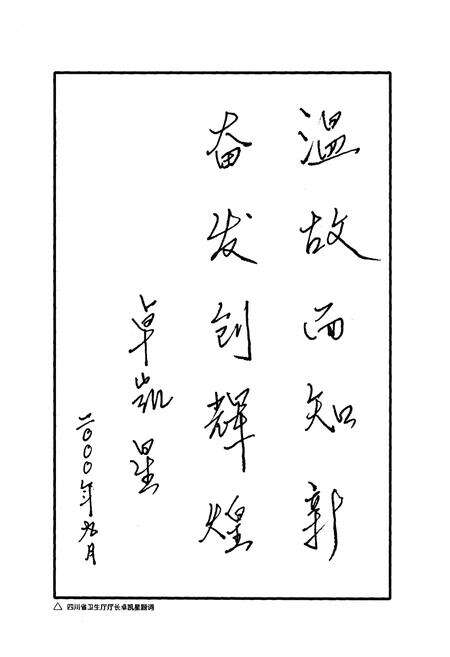 温故而知新
奋发创辉煌
卓凯星
二〇〇〇年九月
△ 四川省卫生厅厅长卓凯星题词